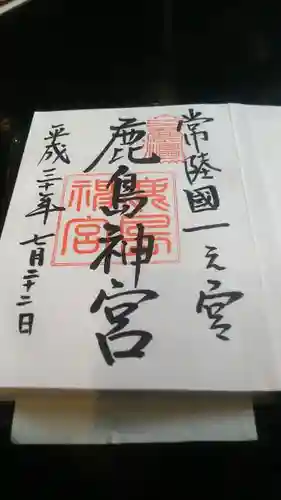 常陸國一之宮
鹿島神宮
平成三十年七月二十二日
鹿島神宮